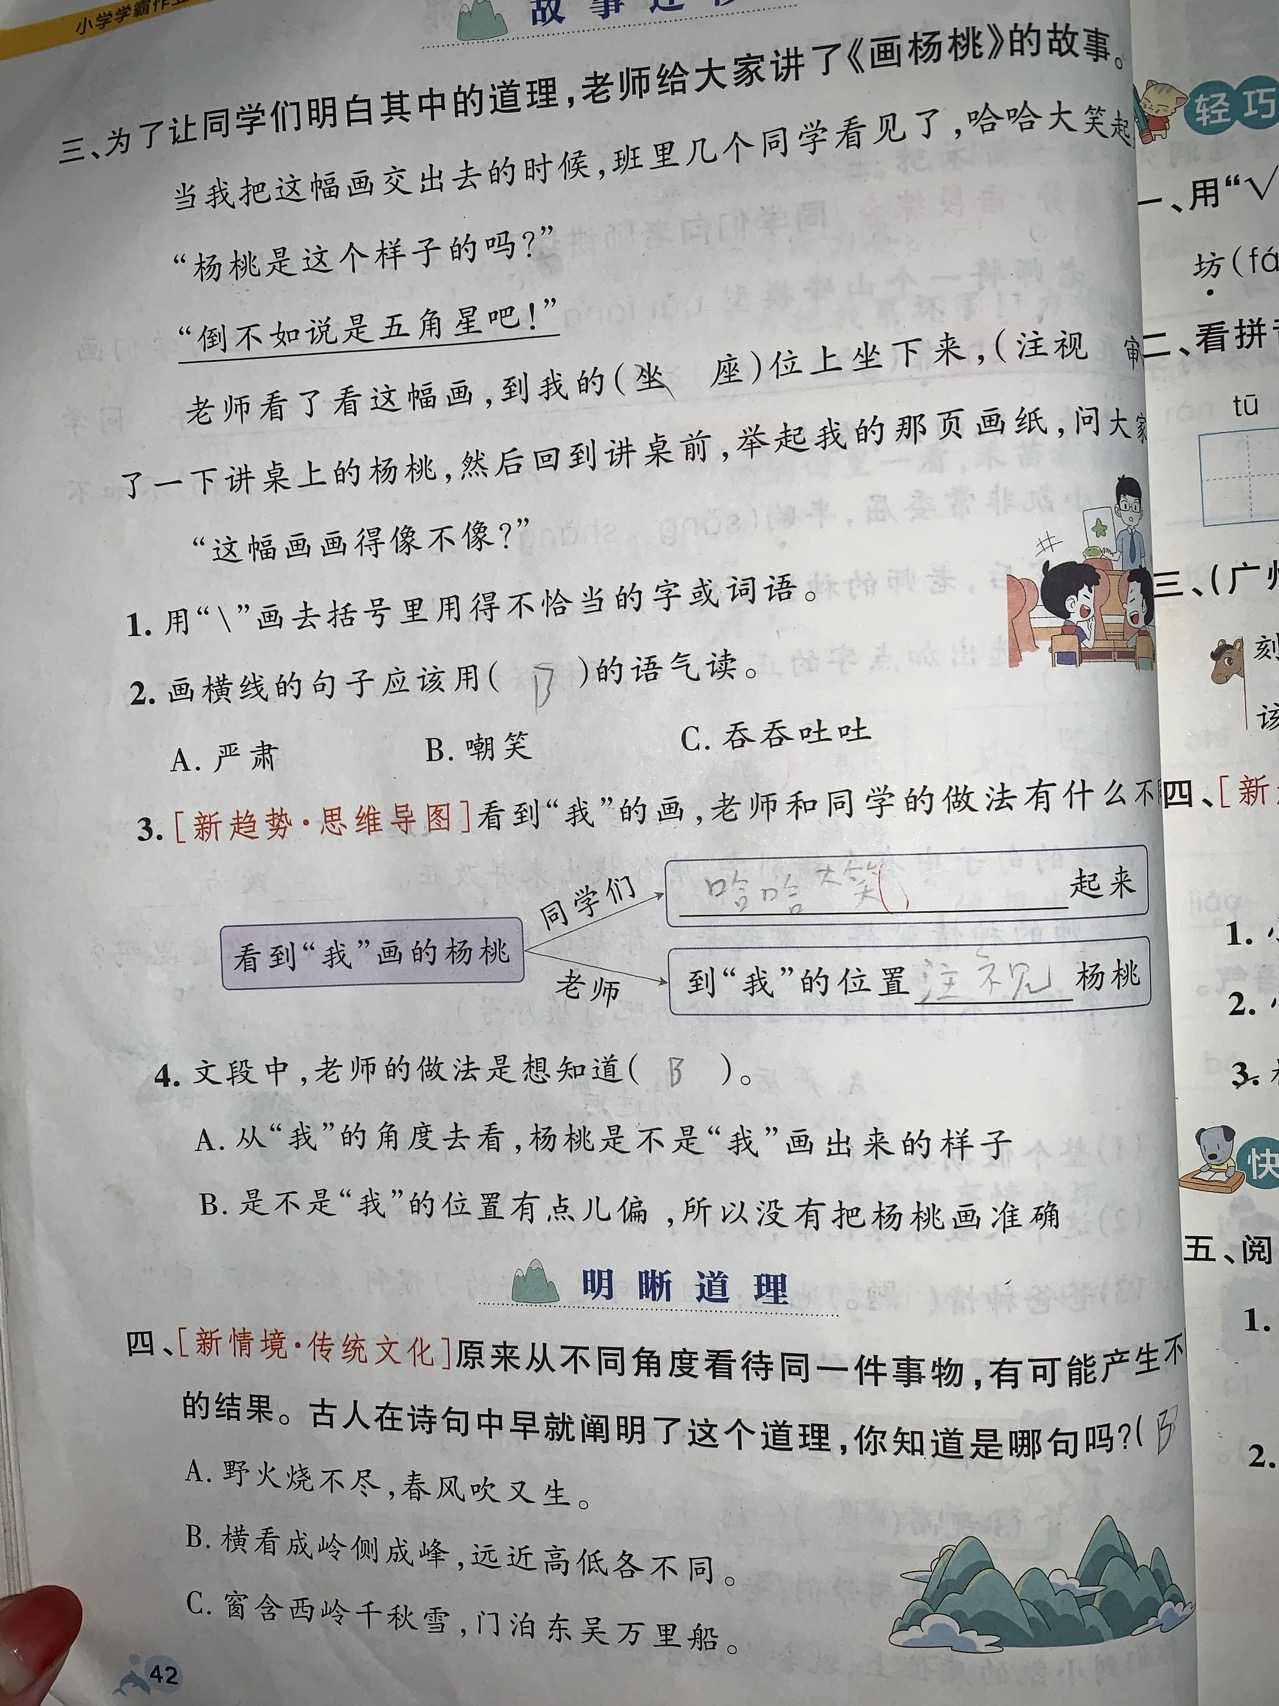 小学学霸作业
故事
三、为了让同学们明白其中的道理，老师给大家讲了《画杨桃》的故事。
当我把这幅画交出去的时候，班里几个同学看见了，哈哈大笑起
“杨桃是这个样子的吗？”
“倒不如说是五角星吧！”
老师看了看这幅画，到我的（坐 座）位上坐下来，（注视 审
了一下讲桌上的杨桃，然后回到讲桌前，举起我的那页画纸，问大家
“这幅画画得像不像？”
1. 用“\”画去括号里用得不恰当的字或词语。
2. 画横线的句子应该用（ B ）的语气读。
A. 严肃 B. 嘲笑 C. 吞吞吐吐
3. [新趋势·思维导图]看到“我”的画，老师和同学的做法有什么不
看到“我”画的杨桃
同学们
哈哈大笑 起来
老师
到“我”的位置注视杨桃
4. 文段中，老师的做法是想知道（ B ）。
A. 从“我”的角度去看，杨桃是不是“我”画出来的样子
B. 是不是“我”的位置有点儿偏，所以没有把杨桃画准确
明晰道理
四、[新情境·传统文化]原来从不同角度看待同一件事物，有可能产生不
的结果。古人在诗句中早就阐明了这个道理，你知道是哪句吗？（ B
A. 野火烧不尽，春风吹又生。
B. 横看成岭侧成峰，远近高低各不同。
C. 窗含西岭千秋雪，门泊东吴万里船。
42
轻巧
一、用“√
坊（fá
二、看拼
tū
三、（广
刻
该
四、[新
1.
2.
3.
快
五、阅
1.
2.